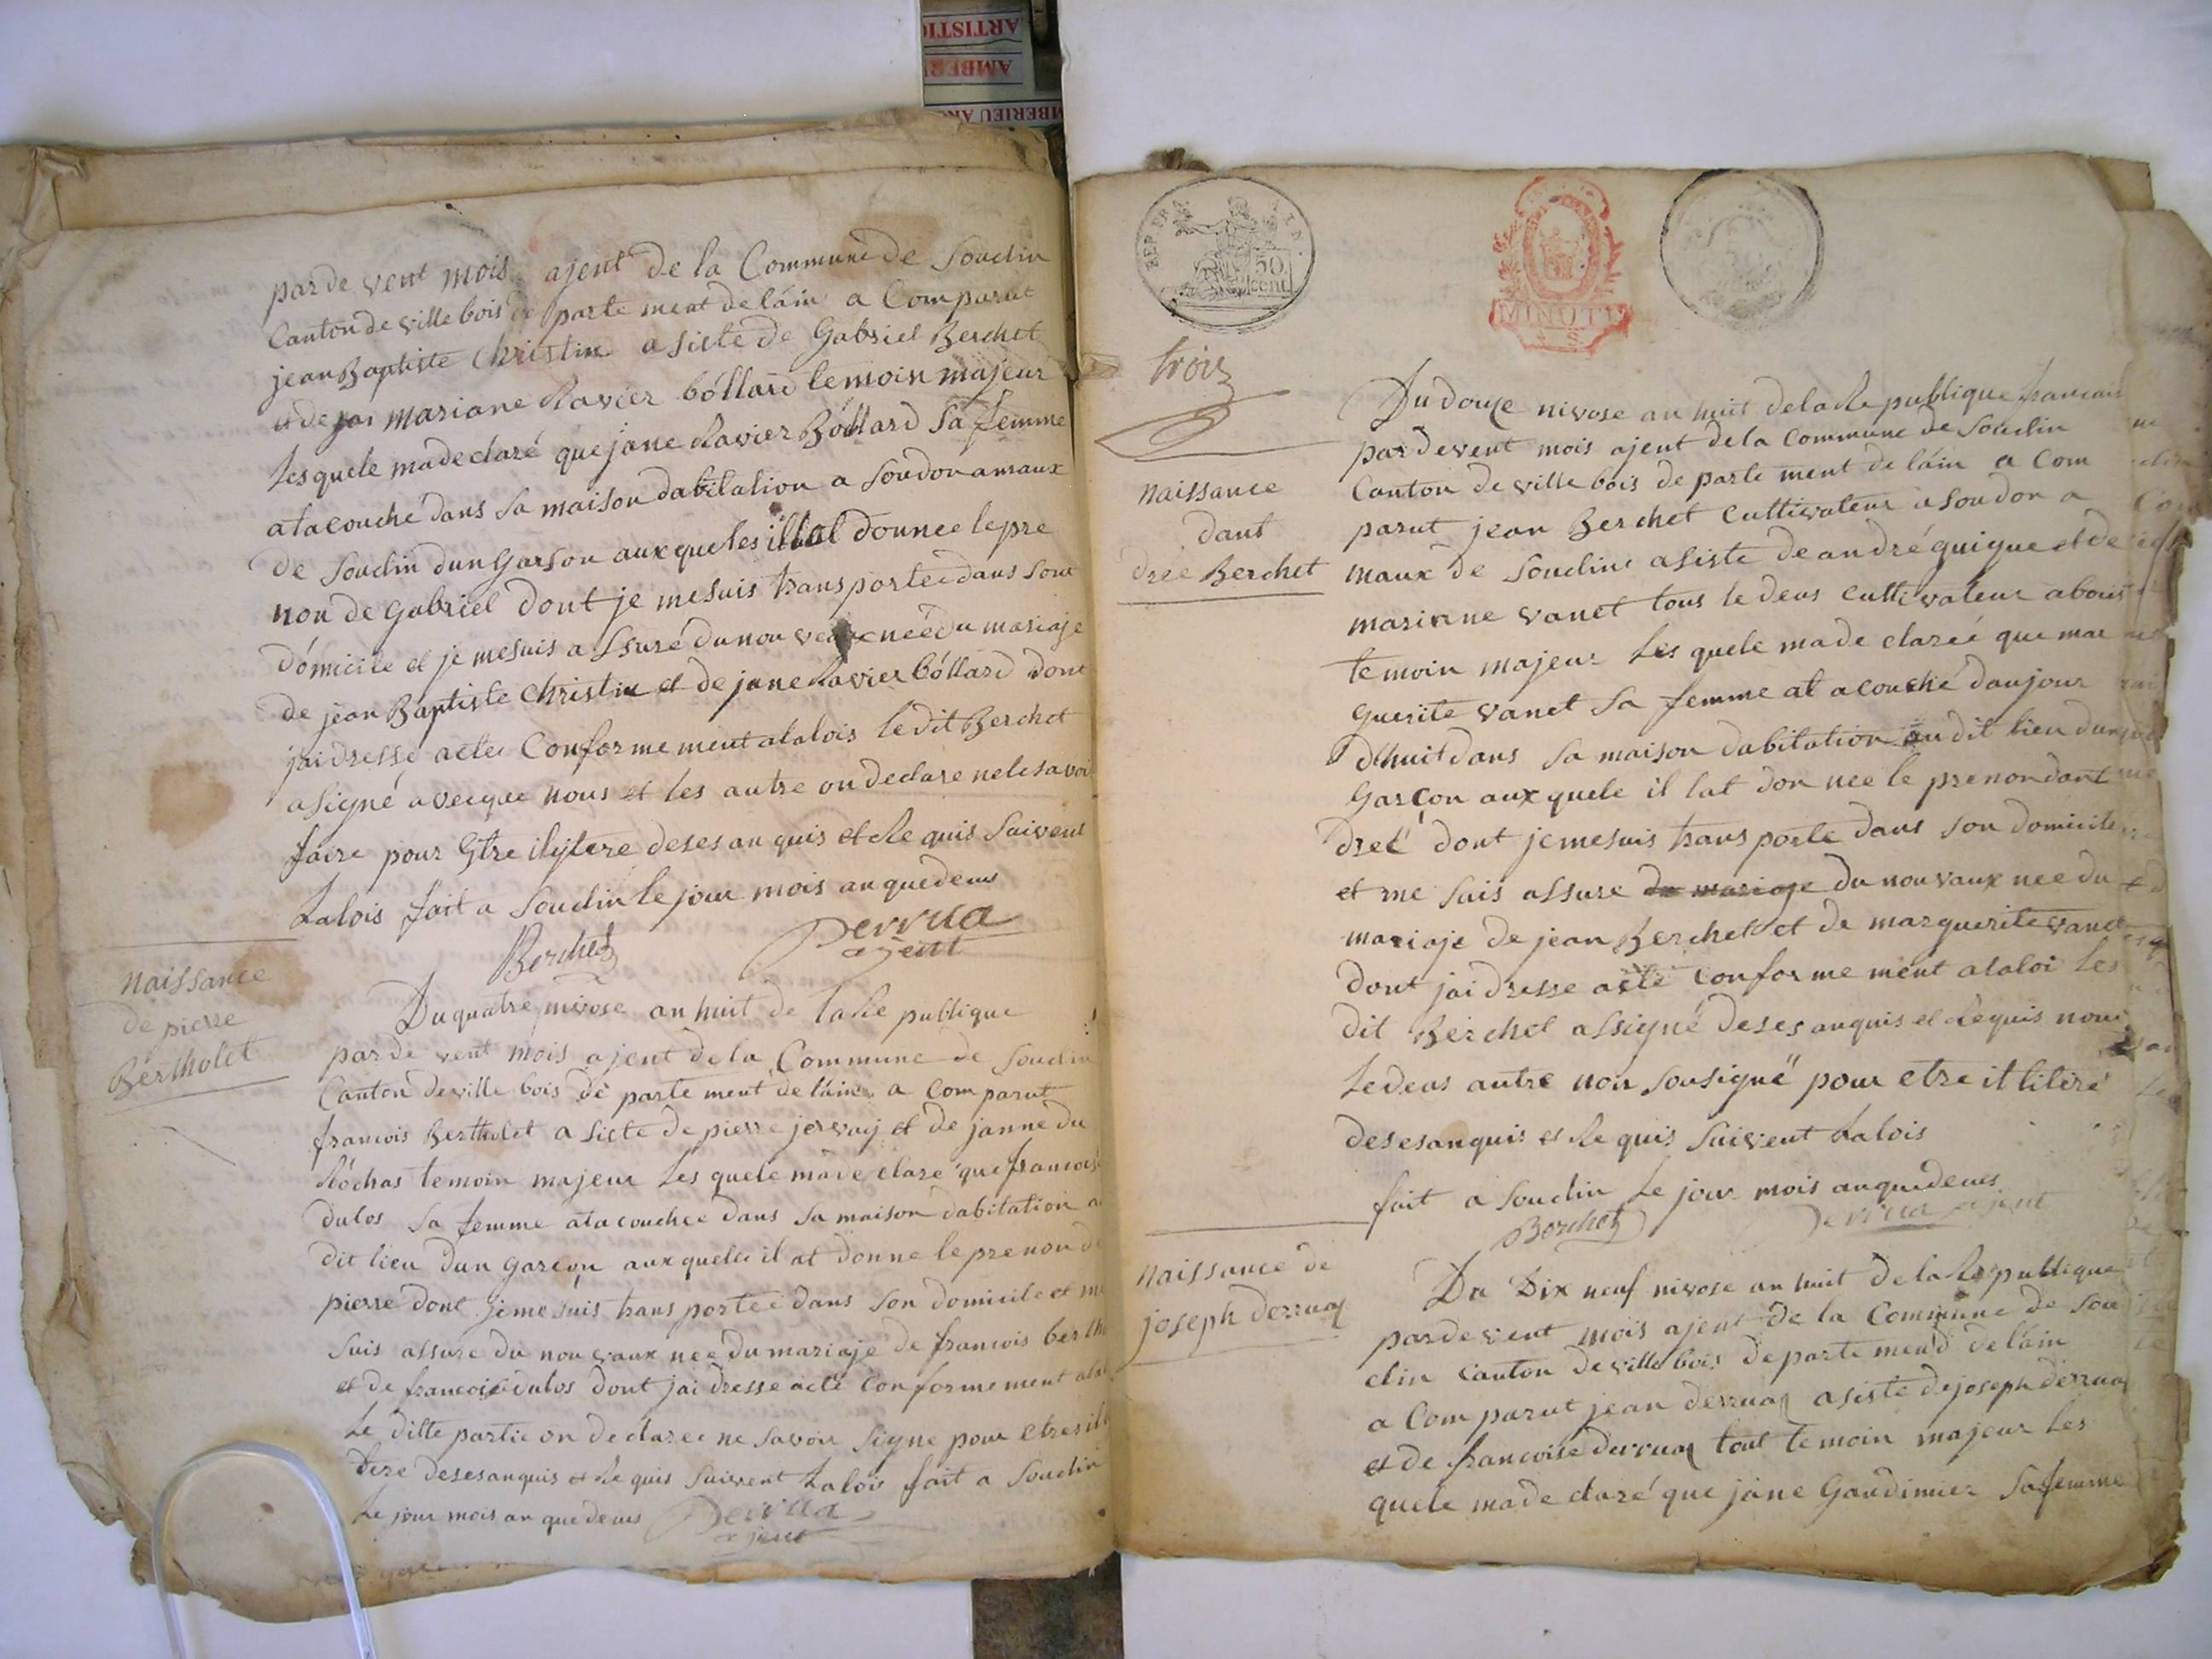 ARTISTI
AMBER
MBERIEU AR
par de vent mois ajent de la Commune de Soudin
Canton de ville bois de parte ment de láin a Comparut
jean Baptiste Christin a siste de Gabriel Berchet
et de mariane Ravier bóllard temoin majeur
Les quele made claré que jane Ravier Bóllard Sa femme
at acouché dans sa maison dabitation a Soudon amaux
de Soudin dun Garson aux queles il lat donnee le pre
non de Gabriel Dont je me suis trans portée dans Sont
dómicile et je me suis a Ssuré du nou veaux née du mariaje
de jean Baptiste Christin et de jane Ravier bóllard dont
jai dressé acte Conforme ment alalois le dit Berchet
a Signé avecque nous et les autre on declare nele savoir
faire pour Etre ilytere deses an quis et Re quis Suivent
Lalois fait a Soudin le jour mois an quedeus
Berchet Derrua
ajent
Naissance
de pierre
Bertholet
Du quatre nivose an huit de la Re publique
par de vent mois ajent de la Commune de Soudin
Canton de ville bois de parte ment de láin a Com parut
francois Bertholet a Siste de pierre jervaij et de janne du
Róchas temoin majeur Les quele made claré que francoise
dulos Sa femme at acouchee dans Sa maison dabitation au
dit lieu dun Garçon aux quelle il at donne le prenon de
pierre dont je me suis trans portée dans Son domicile et me
Suis assure du nou vaux nee du mariaje de francois berth
et de francoise dulos dont jai dresse acte Conforme ment alal
Le ditte partie on declaree ne Savoir Signe pour etre il
tere deses anquis et Re quis Suivent Lalois fait a Soudin
Le jour mois an que deus Derrua
ajent
REP. FRA
50
cent
MINUTE
trois
Naissance
dant
dree Berchet
Du douze nivose an huit de la Re publique francais
par devent mois ajent de la Commune de Soudin
Canton de ville bois de parte ment de láin a Com
parut jean Berchet Cultivateur a Soudon a
maux de Soudin a Siste de andré guigue et de
mariane vanet tous le deus cultivateur a
temoin majeur Les quele made claréé que mar
guerite vanet Sa femme at acouché daujour
dhuit dans Sa maison dabitation au dit lieu dun
Garçon aux quele il lat don nee le prenon dant
dreé dont je me suis trans porte dans Son domicile
et me Suis assure du mariaje du nou vaux nee du
mariaje de jean Berchet et de marguerite vanet
dont jai dresse acte Conforme ment alaloi Les
dit Berchet a Ssigné deses anquis et Requis nous
Le deus autre non Sousigné pour etre it litéré
deses anquis et Re quis Suivent Lalois
fait a Soudin Le jour mois an quedeus
Berchet Derrua ajent
Naissance de
joseph derruaz
Du Dix neuf nivose an huit de la Re publique
par de vent mois ajent de la Commune de Sou
din Canton de ville bois de parte ment de láin
a Com parut jean derruaz a siste de joseph derruaz
et de francoise derruaz tout temoin majeur Les
quele made claré que jane Gaudimier Sa femme